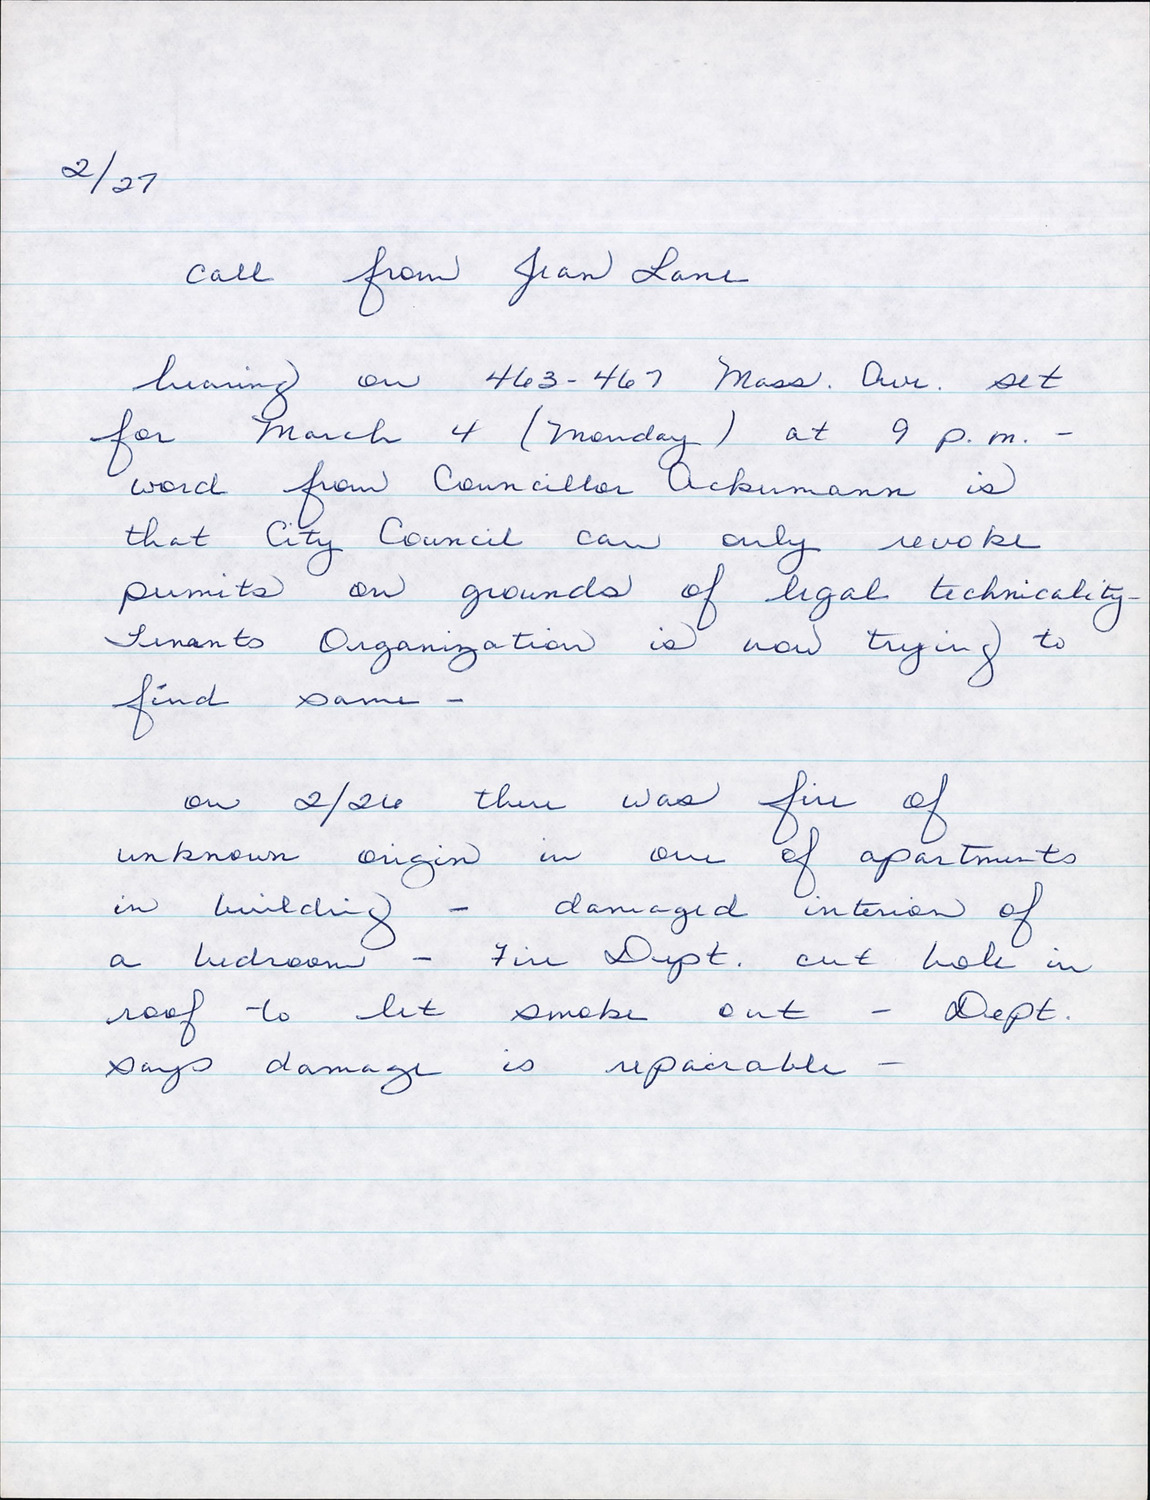 2/27
call from Jean Lane
hearing on 463-467 Mass. Ave. set
for March 4 (Monday) at 9 p.m. -
word from Councillor Ackermann is
that City Council can only revoke
permits on grounds of legal technicality-
Tenants Organization is now trying to
find same -
on 2/26 there was fire of
unknown origin in one of apartments
in building - damaged interior of
a bedroom - Fire Dept. cut hole in
roof to let smoke out - Dept.
says damage is repairable -